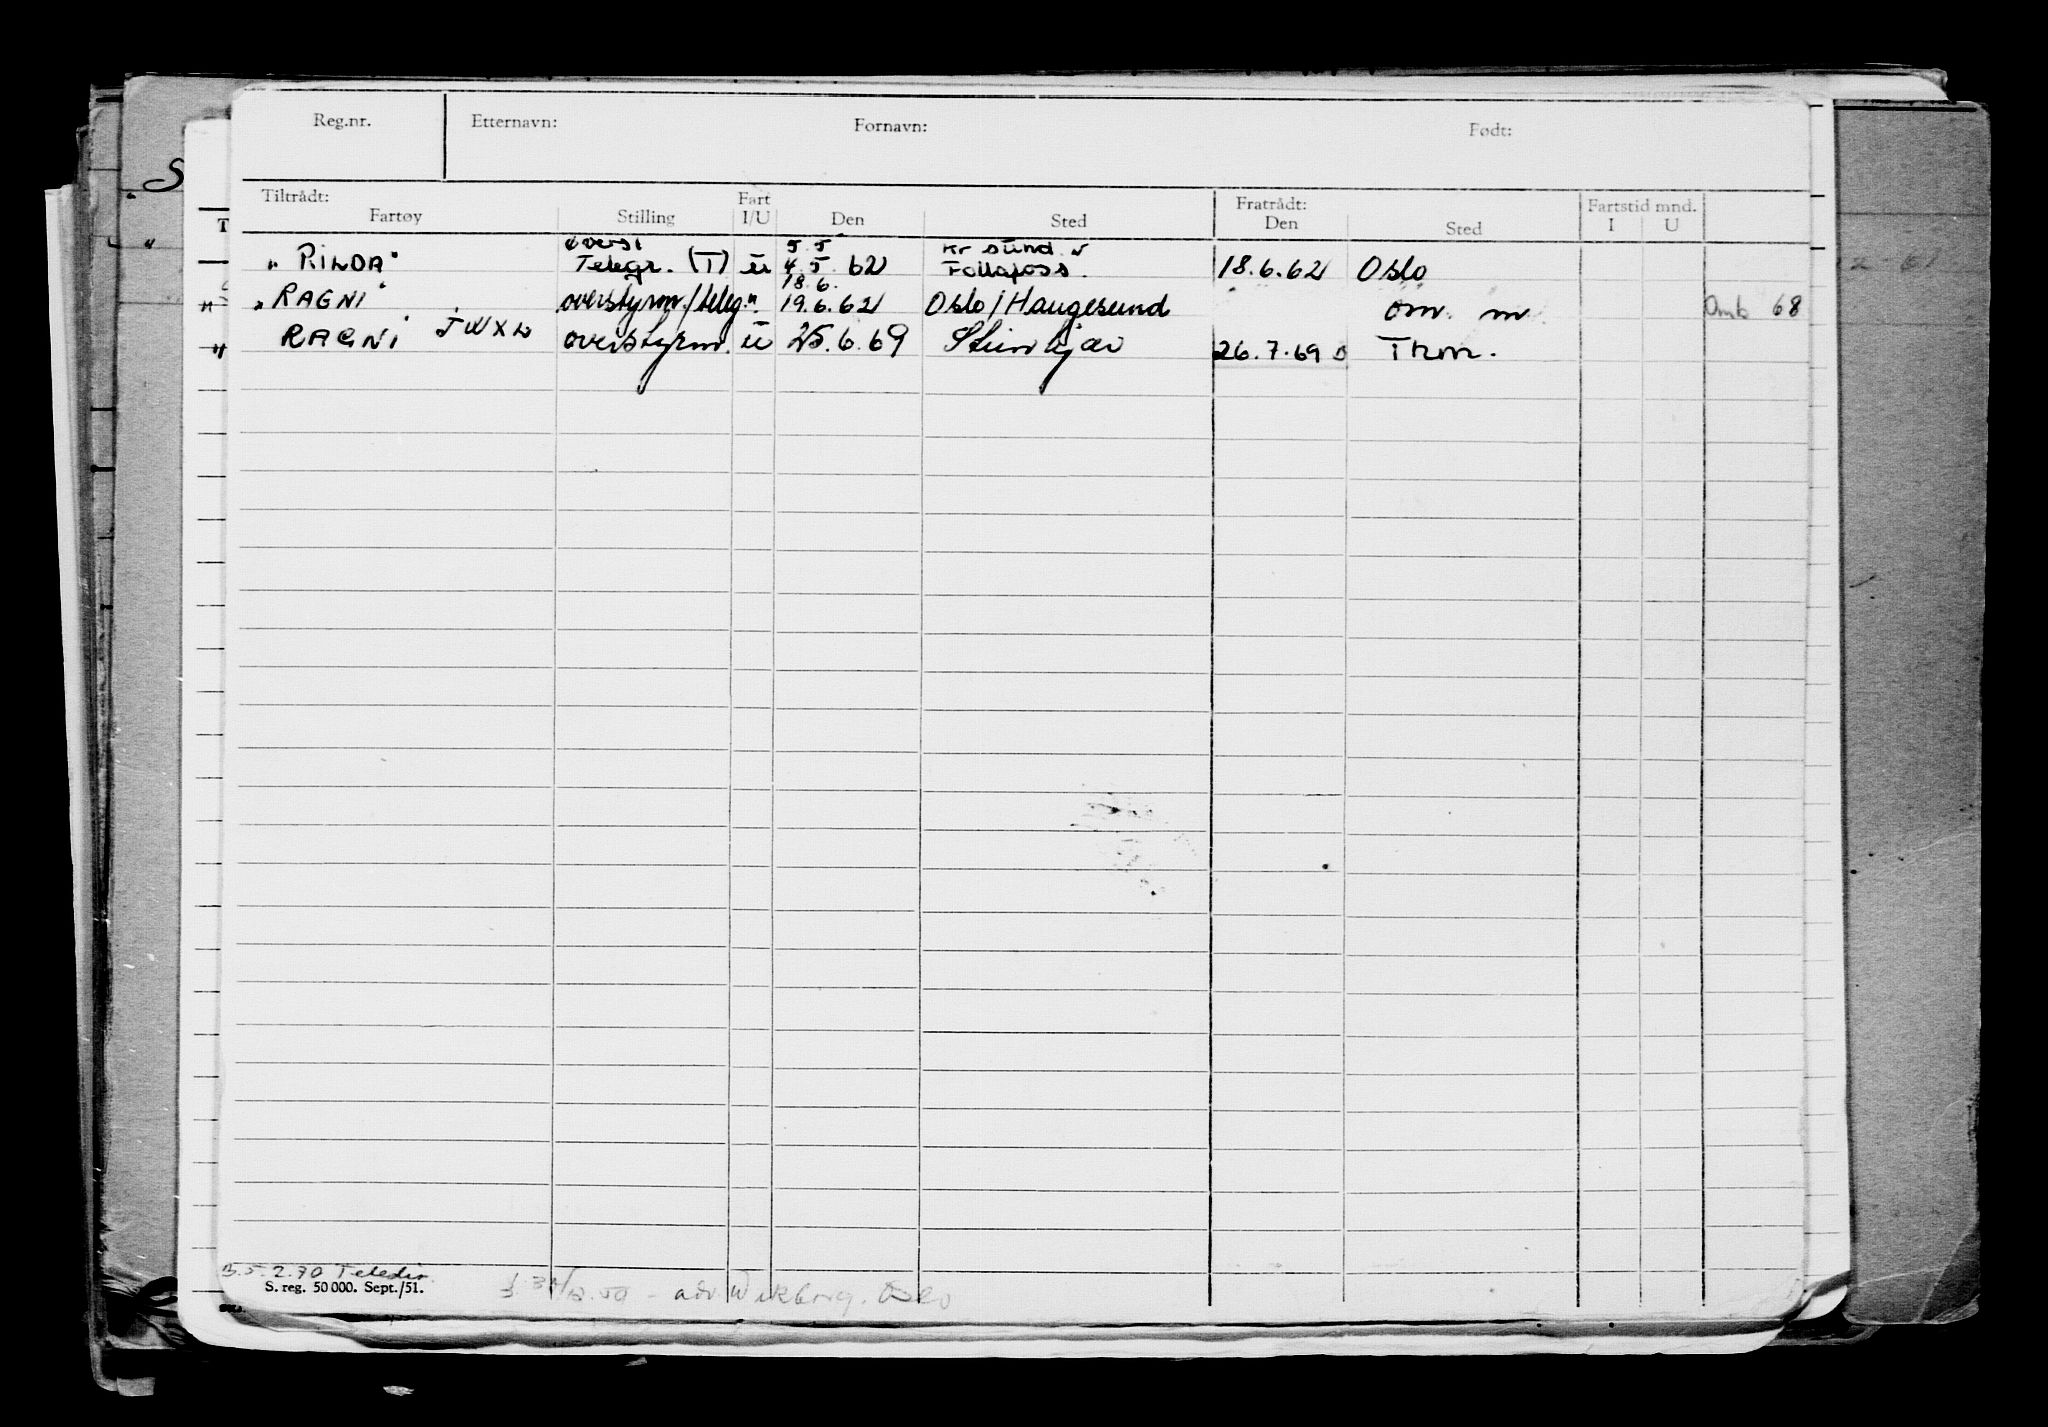 Reg.nr. Etternavn: Fornavn: Født:
Tiltrådt: Fart Fratrådt: Fartstid mnd.
Fartøy Stilling I/U Den Sted Den Sted I U
overst 5.5 Kr sund
"RINDA" Telegr. (T) u 4.5. 62 Follafoss. 18.6.62 Oslo
18.6.
"RAGNI" overstyrm./teleg. " 19.6.62 Oslo/Haugesund om. m Omb 68
" RAGNI JWXW overstyrm. u 25.6.69 Steinkjær 26.7.69 Thm.
B.5.2.70 Teledir.
S. reg. 50 000. Sept./51.
adv. Wikborg. Oslo